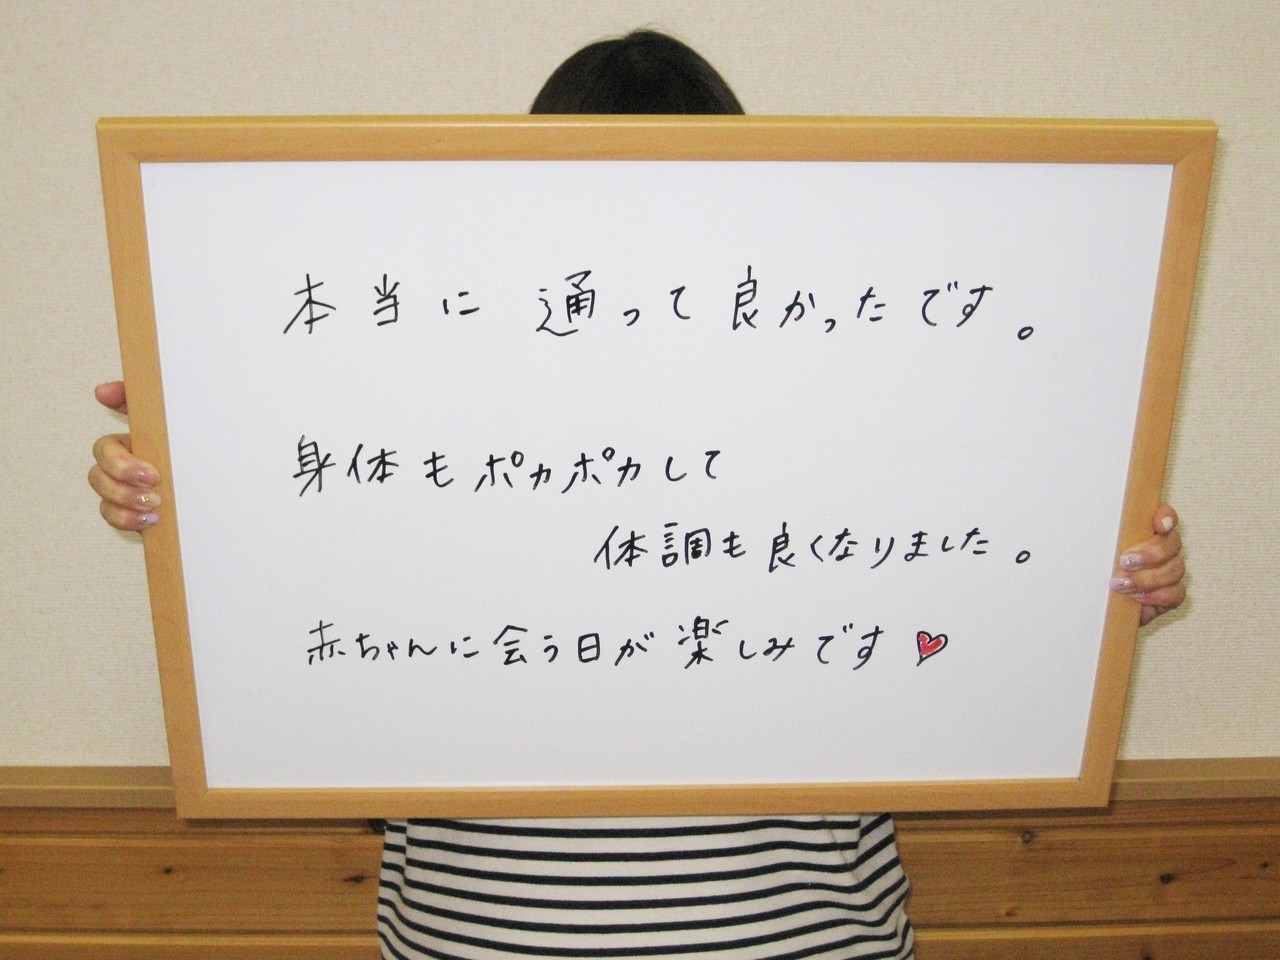 本当に通って良かったです。
身体もポカポカして
体調も良くなりました。
赤ちゃんに会う日が楽しみです♥